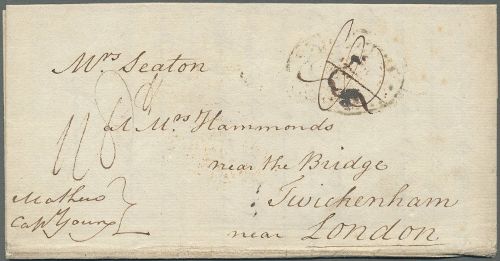 Mrs Seaton
at Mrs Hammonds
near the Bridge
Twickenham
near London
Capt Young